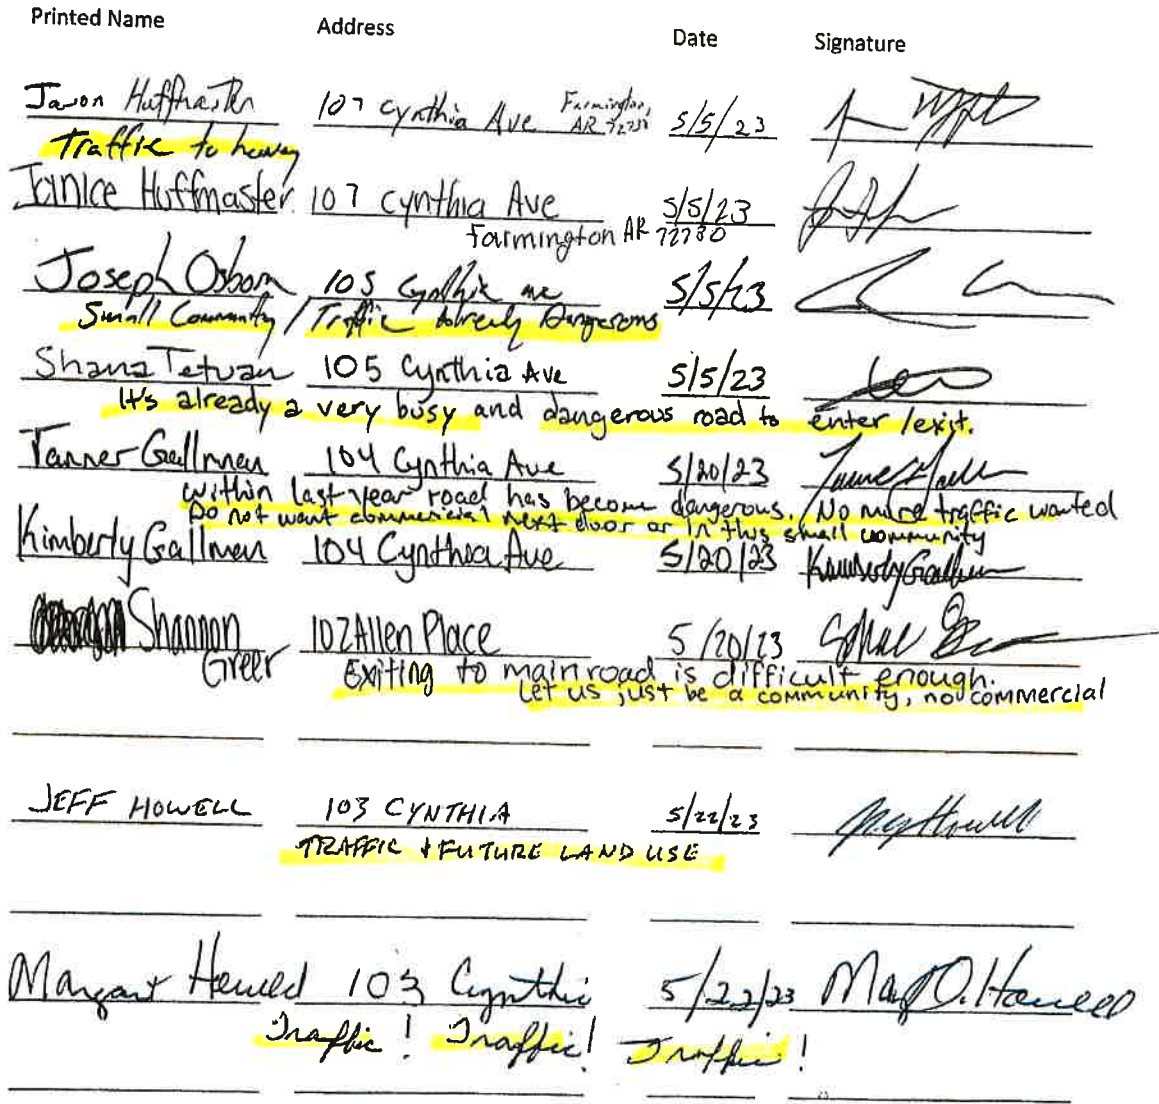 Printed Name Address Date Signature
Jason Huffmaster 107 Cynthia Ave Farmington, AR 72730 5/5/23
Traffic to heavy
Janice Huffmaster 107 Cynthia Ave 5/5/23
Farmington AR 72730
Joseph Osborn 105 Cynthia Ave 5/5/23
Small Community / Traffic Already Dangerous
Shana Tetuan 105 Cynthia Ave 5/5/23
It's already a very busy and dangerous road to enter/exit.
Tanner Gallman 104 Cynthia Ave 5/20/23
Within last year road has become dangerous. No more traffic wanted
Do not want commercial next door or in this small community
Kimberly Gallman 104 Cynthia Ave 5/20/23 Kimberly Gallman
Shannon Greer 102 Allen Place 5/20/23
Exiting to main road is difficult enough.
Let us just be a community, no commercial
JEFF HOWELL 103 CYNTHIA 5/22/23 Jeff Howell
TRAFFIC & FUTURE LAND USE
Margaret Howell 103 Cynthia 5/22/23 Marg O. Howell
Traffic! Traffic! Traffic!